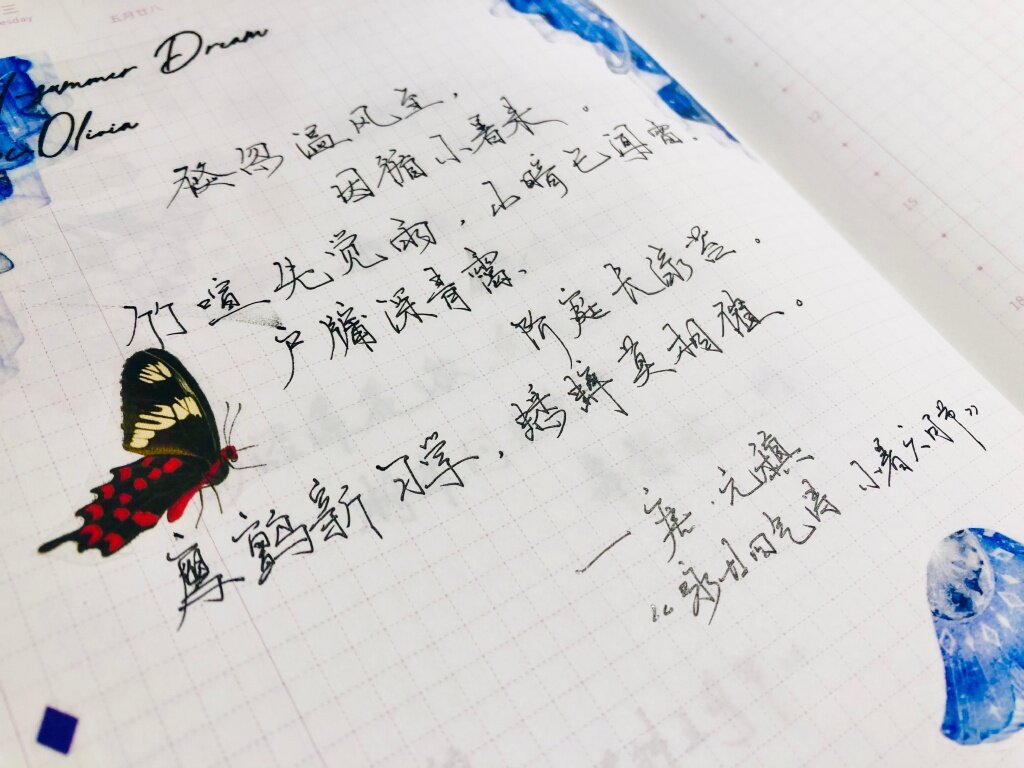 三
esday
五月廿八
summer Dream
Olivia
倏忽温风至，
因循小暑来。
竹喧先觉雨，山暗已闻雷。
户牖深青霭，
阶庭长绿苔。
鹰鹯新习学，蟋蟀莫相催。
—唐·元稹
《咏廿四气诗 小暑六月节》
12
15
18